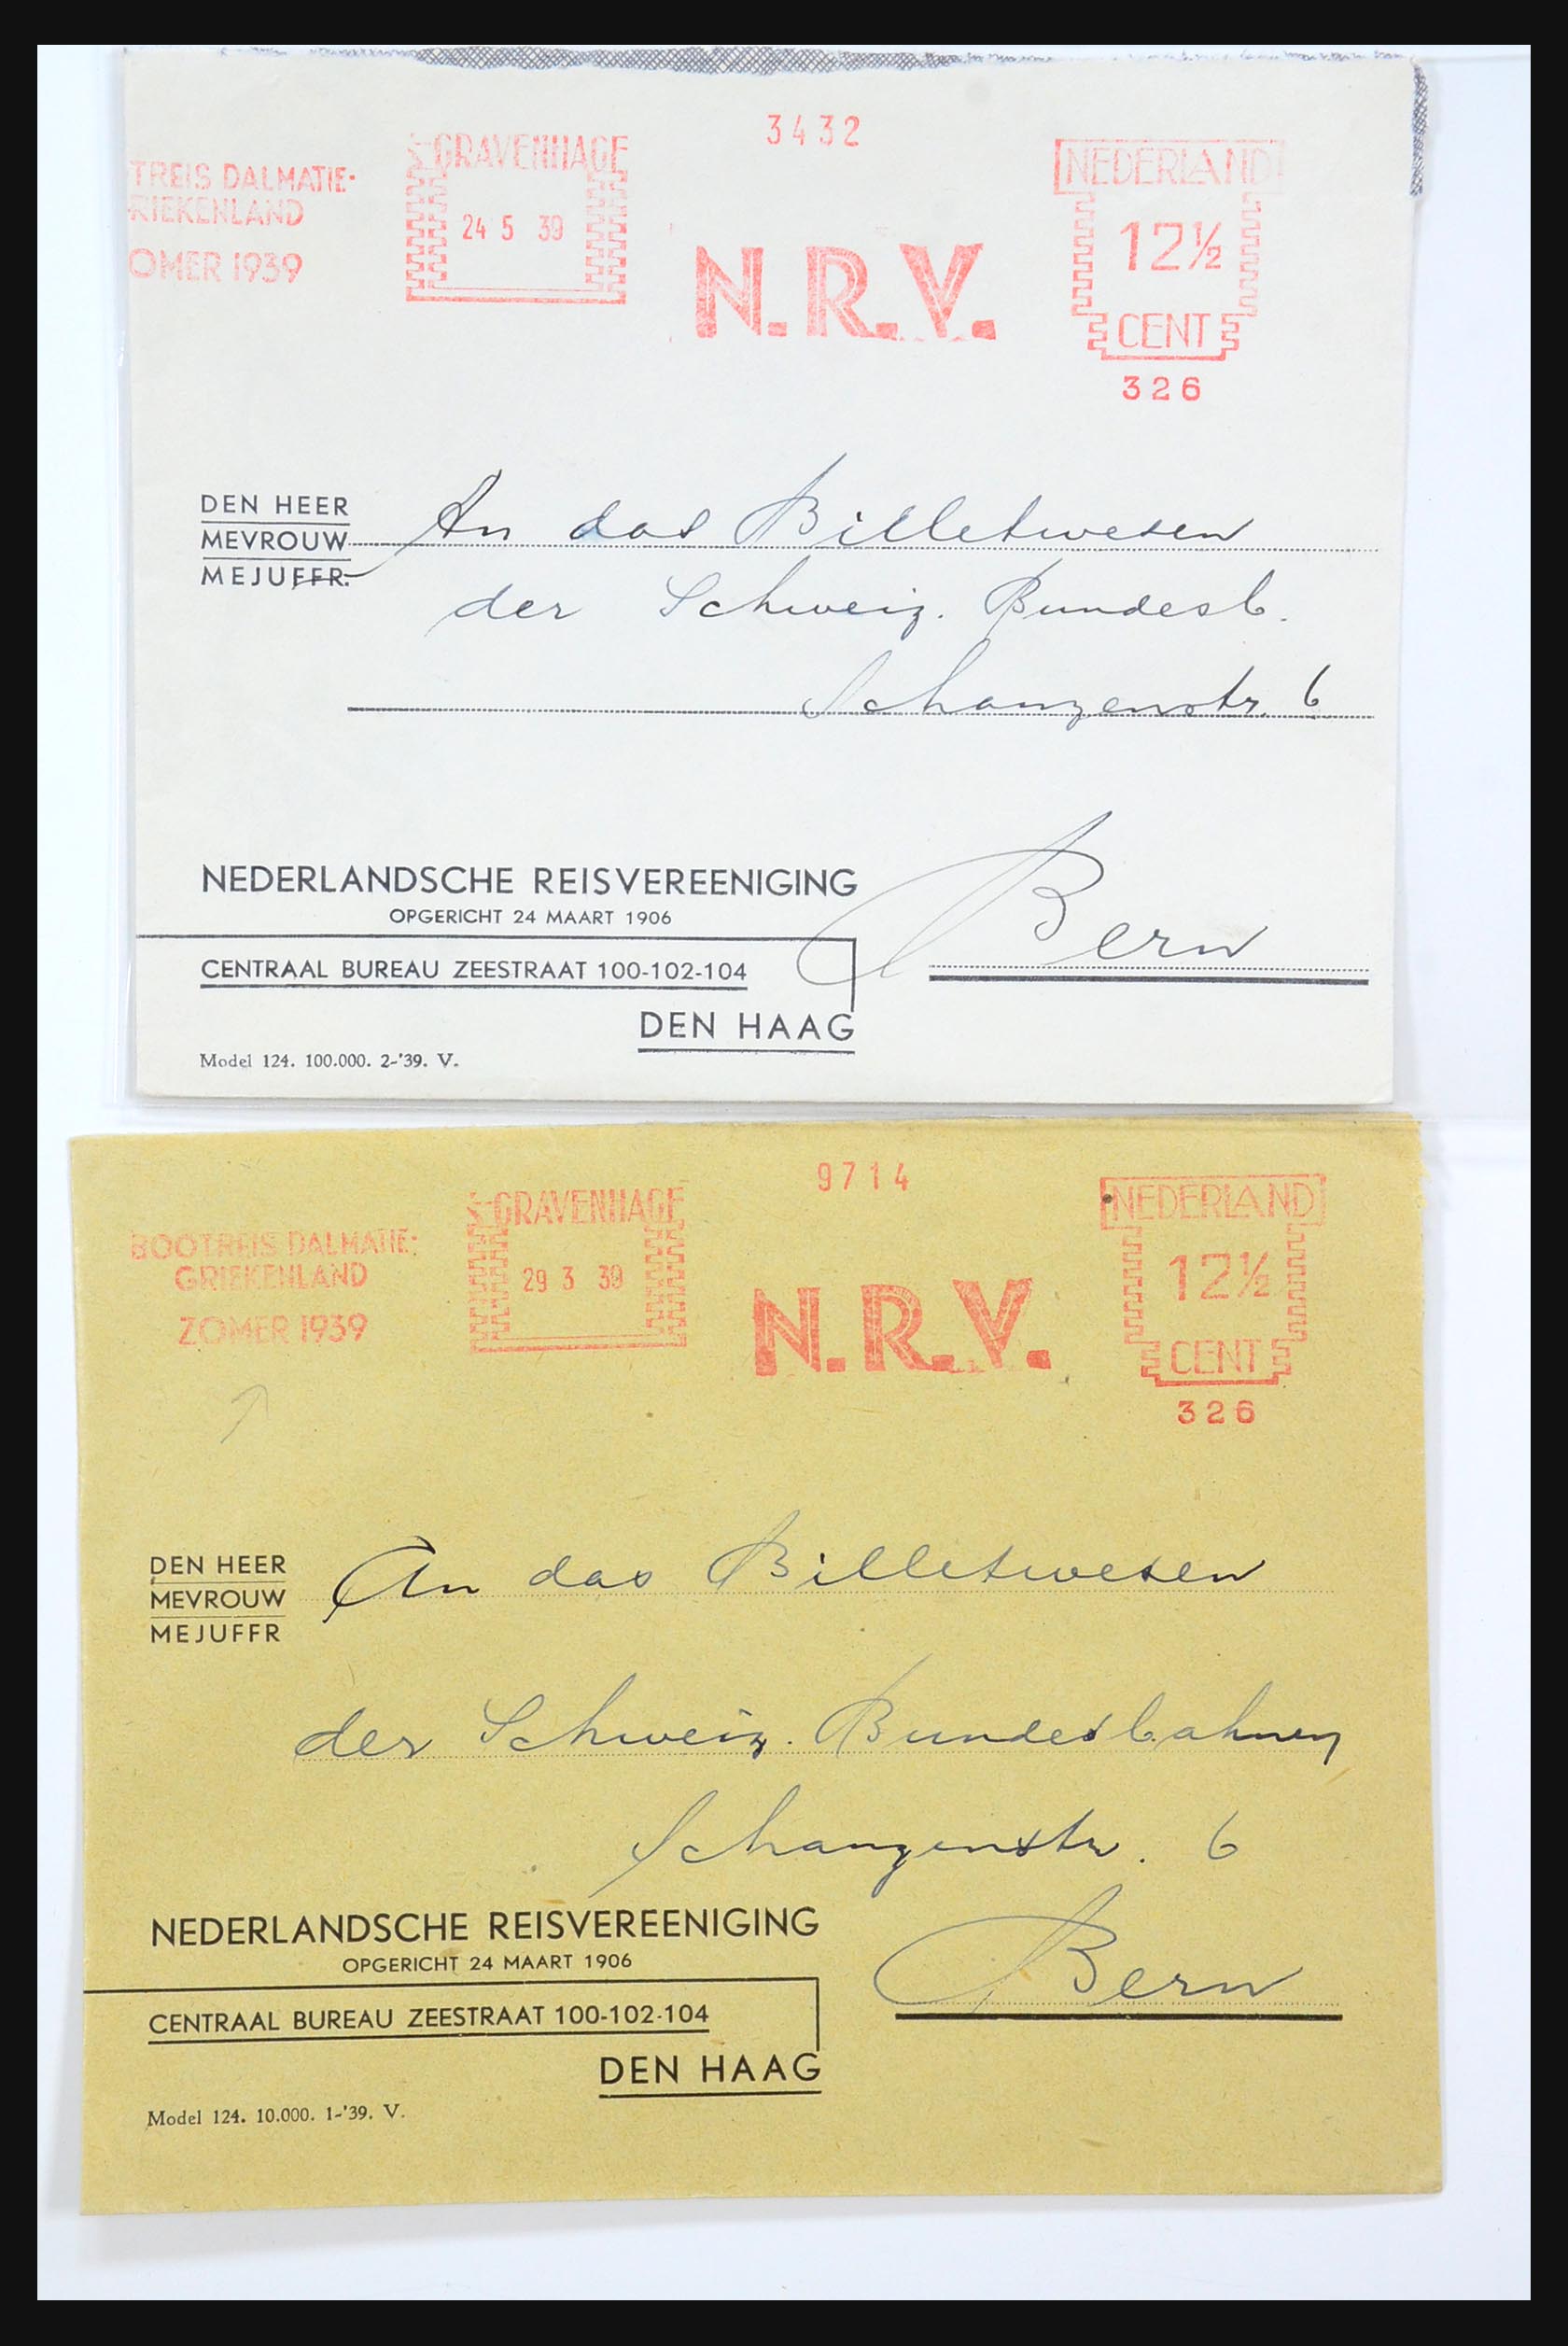 3432
TREIS DALMATIE-
RIEKENLAND
OMER 1939
'S-GRAVENHAGE
24 5 39
N.R.V.
NEDERLAND
12½
CENT
326
DEN HEER
MEVROUW
MEJUFFR.
An das Billetwesen
der Schweiz. Bundesb.
Schanzenstr. 6
Bern
NEDERLANDSCHE REISVEREENIGING
OPGERICHT 24 MAART 1906
CENTRAAL BUREAU ZEESTRAAT 100-102-104
DEN HAAG
Model 124. 100.000. 2-'39. V.
9714
BOOTREIS DALMATIE-
GRIEKENLAND
ZOMER 1939
'S-GRAVENHAGE
29 3 39
N.R.V.
NEDERLAND
12½
CENT
326
DEN HEER
MEVROUW
MEJUFFR
An das Billetwesen
der Schweiz. Bundesbahnen
Schanzenstr. 6
Bern
NEDERLANDSCHE REISVEREENIGING
OPGERICHT 24 MAART 1906
CENTRAAL BUREAU ZEESTRAAT 100-102-104
DEN HAAG
Model 124. 10.000. 1-'39. V.